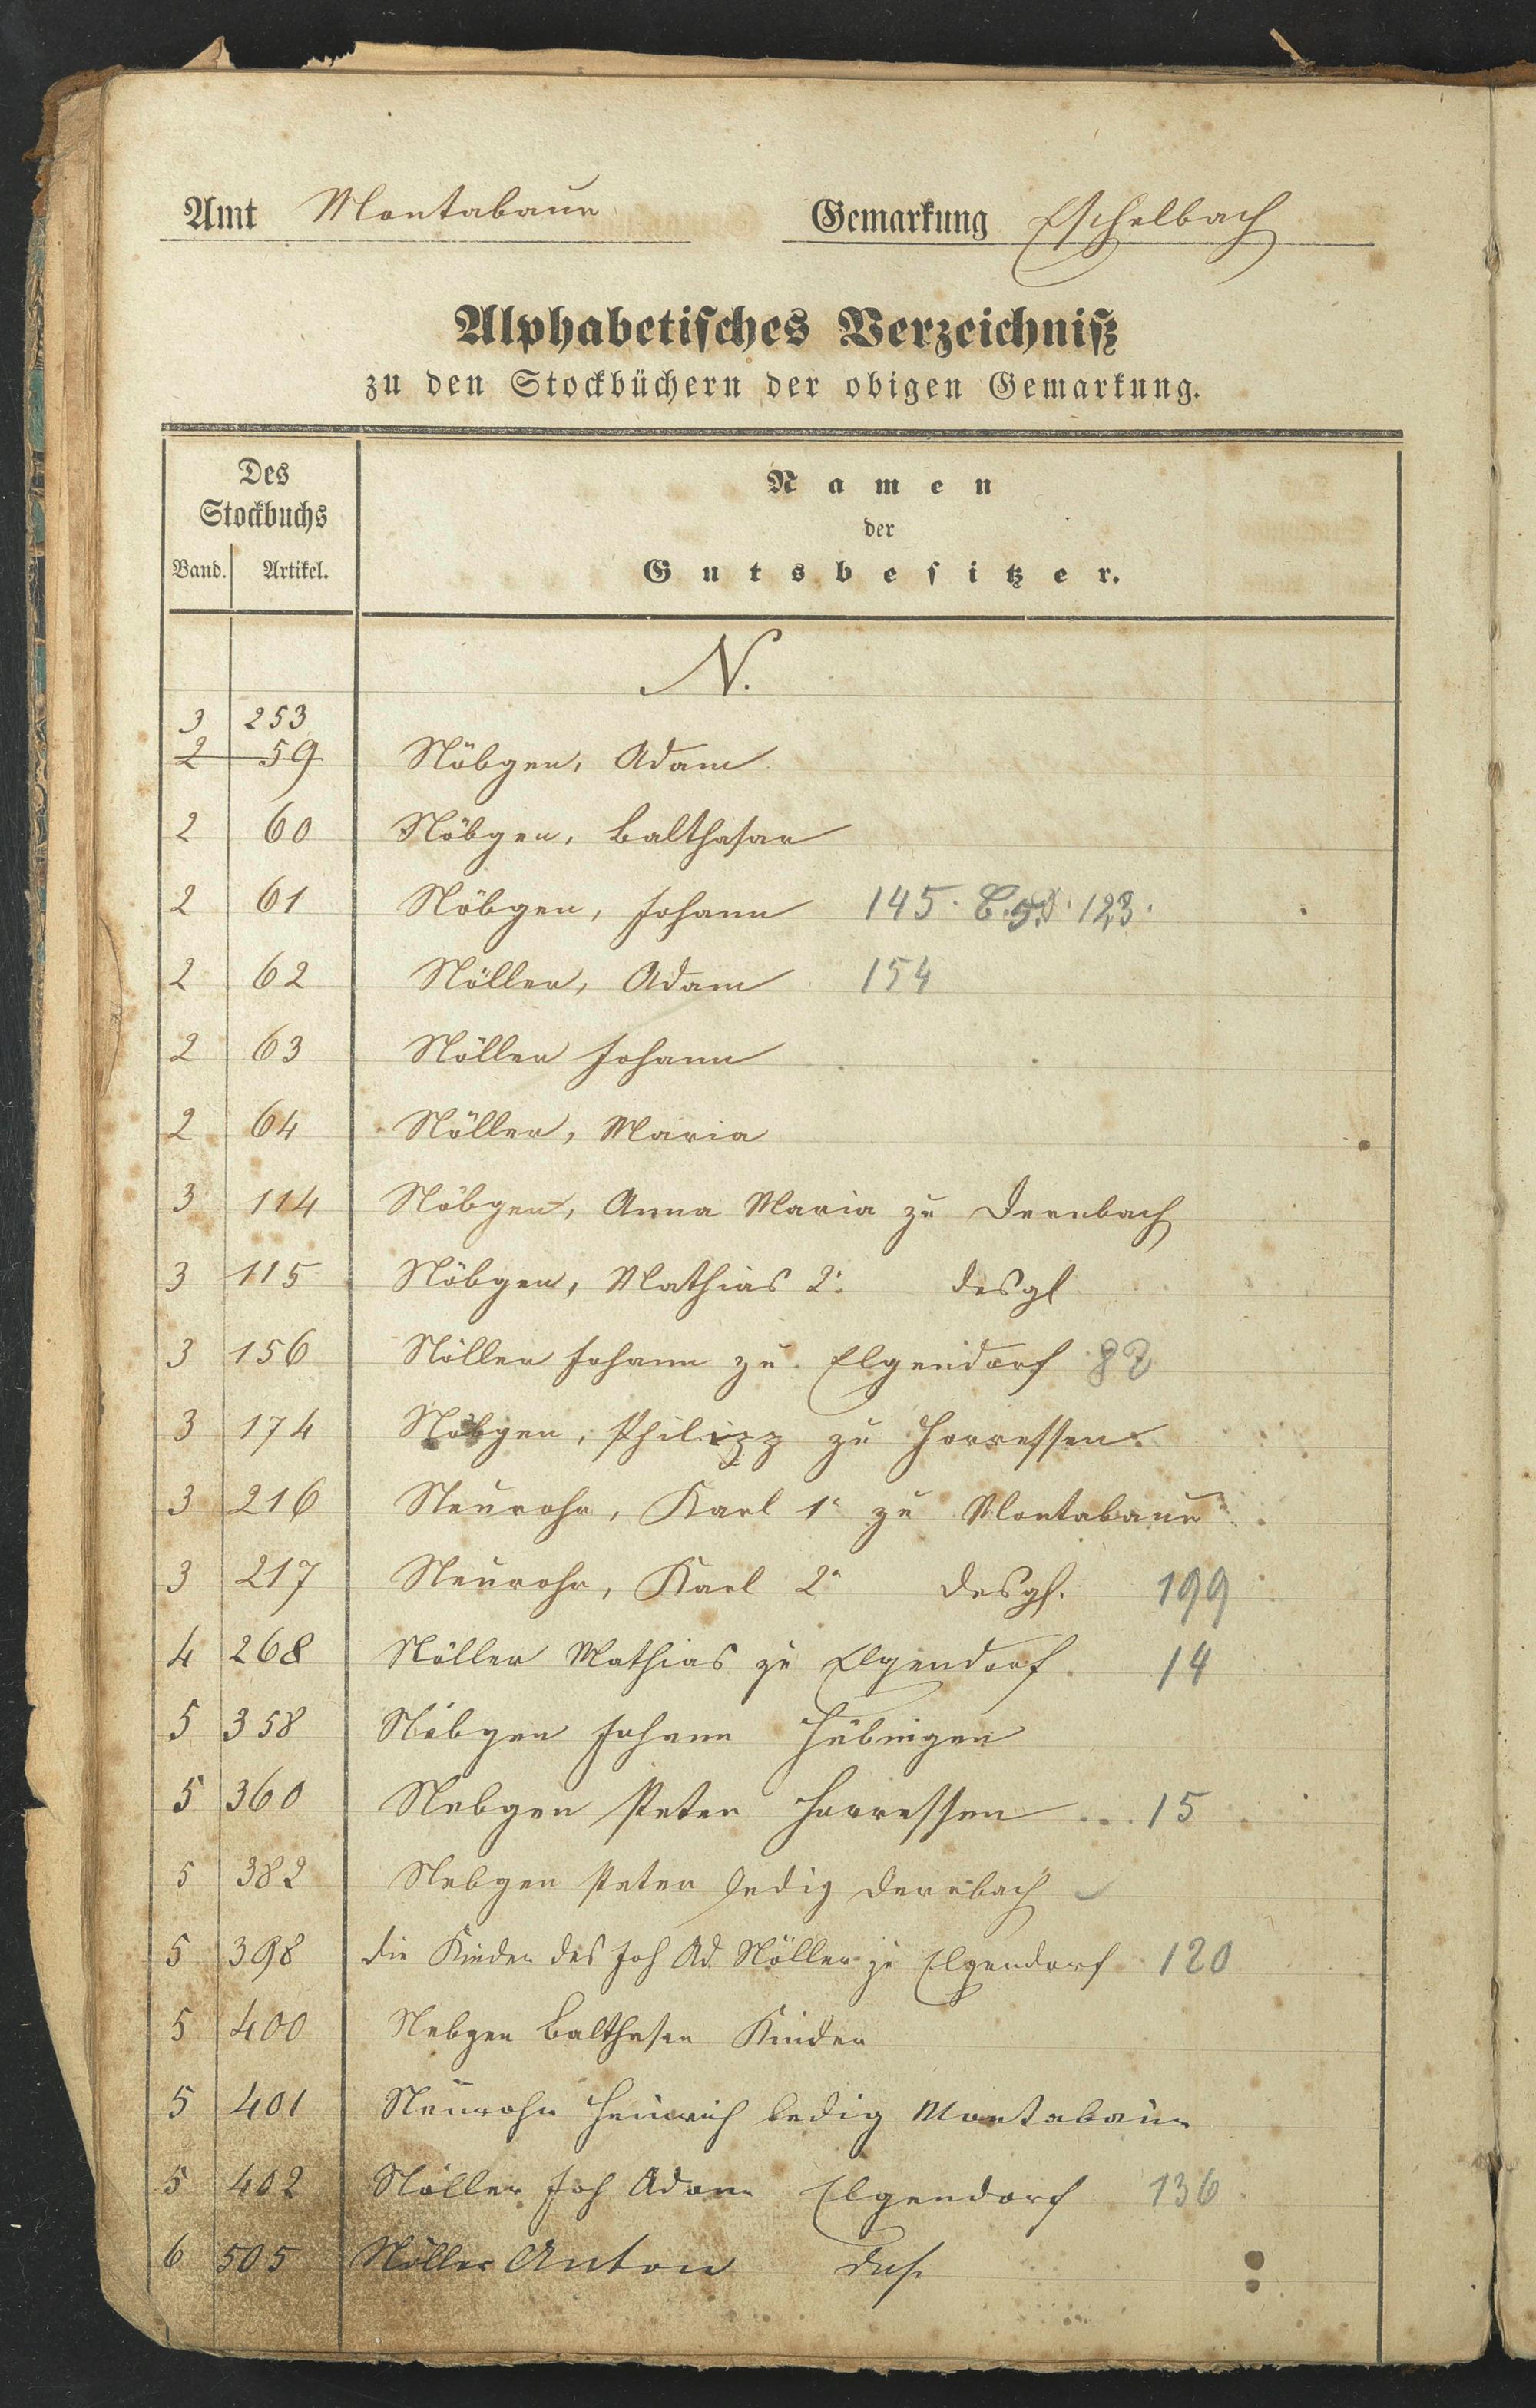 Amt Montabaur Gemarkung Eschelbach
Alphabetisches Verzeichniß
zu den Stockbüchern der obigen Gemarkung.
Des Stockbuchs
Band. Artikel.
Namen
der
Gutsbesitzer.
N.
3 253
2 59 Nöbgen, Adam
2 60 Nöbgen, Balthasar
2 61 Nöbgen, Johann 145. 123.
2 62 Nöller, Adam 154
2 63 Nöller Johann
2 64 Nöller, Maria
3 114 Nöbgen, Anna Maria zu Dernbach
3 115 Nöbgen, Mathias 2r desgl
3 156 Nöller Johann zu Elgendorf 82
3 174 Nöbgen, Philipp zu Horressen
3 216 Neurohr, Karl 1r zu Montabaur
3 217 Neurohr, Karl 2r desgl. 199
4 268 Nöller Mathias zu Elgendorf 14
5 358 Nöbgen Johann Hübingen
5 360 Nebgen Peter Horressen 15
5 382 Nebgen Peter ledig Dernbach
5 398 die Kinder des Joh Ad. Nöller zu Elgendorf 120
5 400 Nebgen Balthasar Kinder
5 401 Neurohr Heinrich ledig Montabaur
5 402 Nöller Joh Adam Elgendorf 136
6 505 Nöller Anton das.